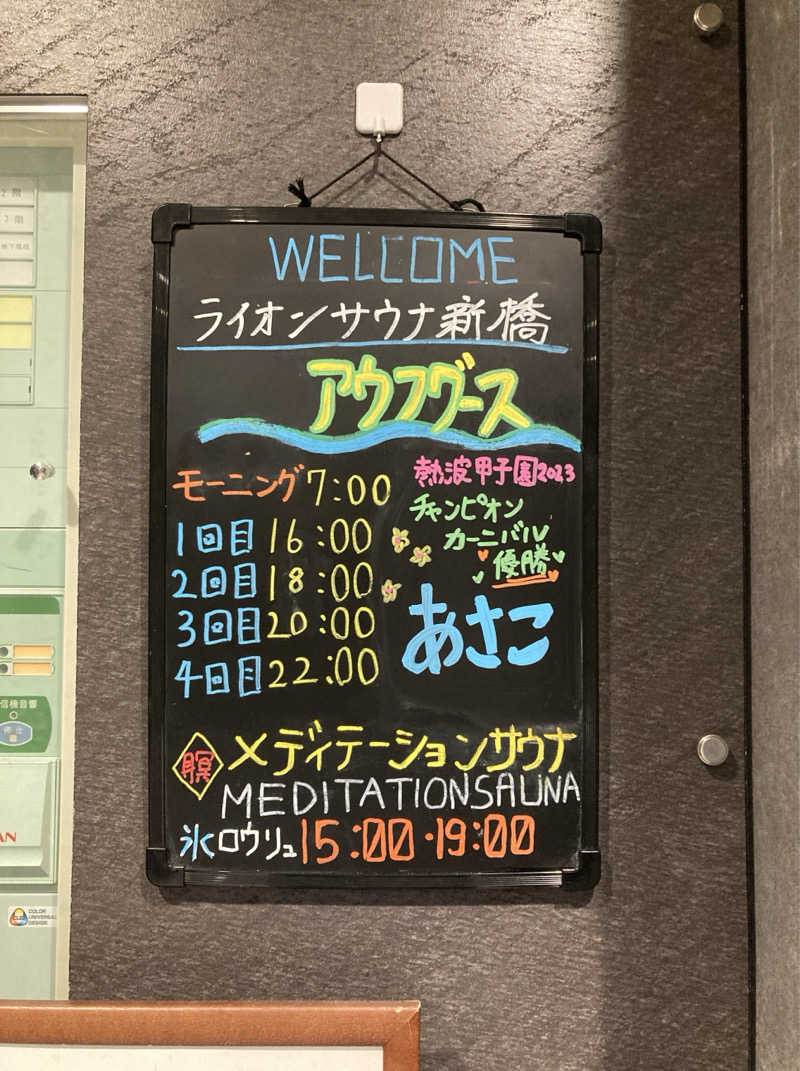 WELCOME
ライオンサウナ新橋
アウフグース
モーニング 7:00
1回目 16:00
2回目 18:00
3回目 20:00
4回目 22:00
熱波甲子園2023
チャンピオン
カーニバル
優勝
あさこ
瞑 メディテーションサウナ
MEDITATIONSAUNA
氷ロウリュ 15:00・19:00
2階
信機音響
停止
AN
COLOR
UNIVERSAL
DESIGN